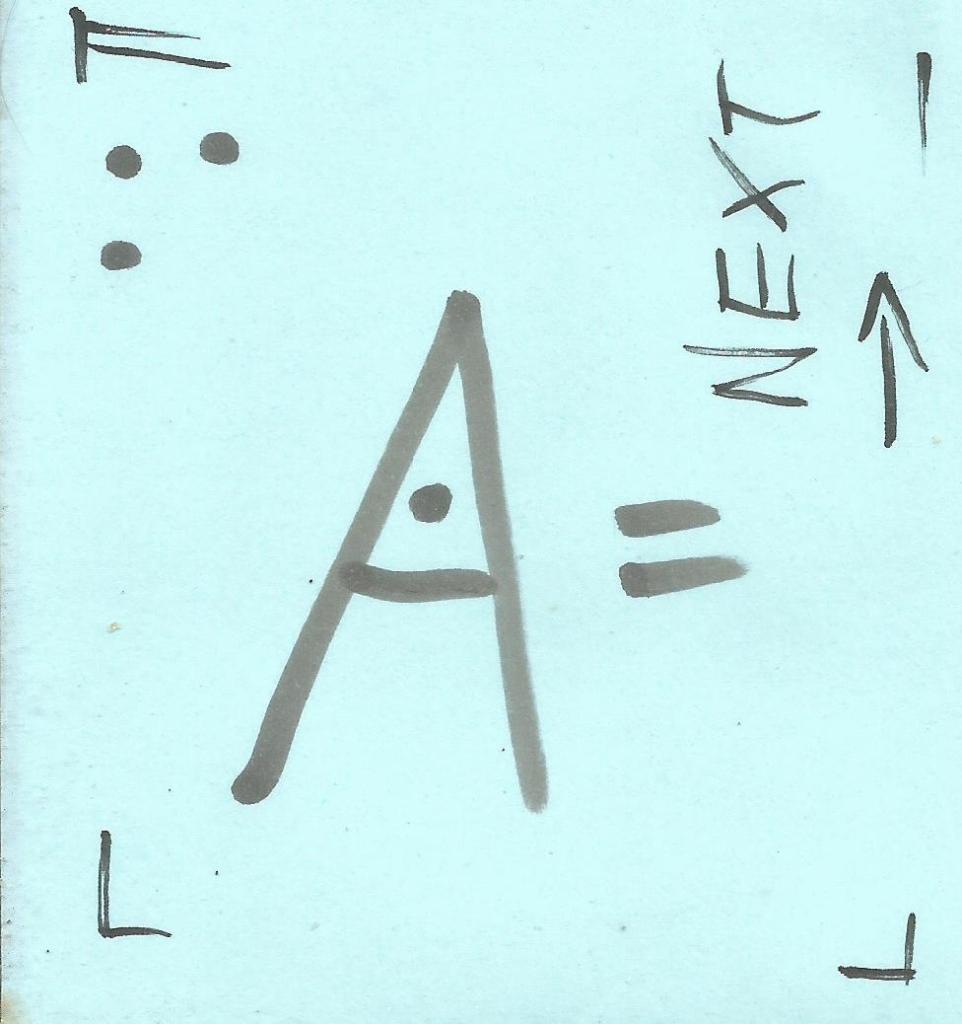 A =
NEXT
→